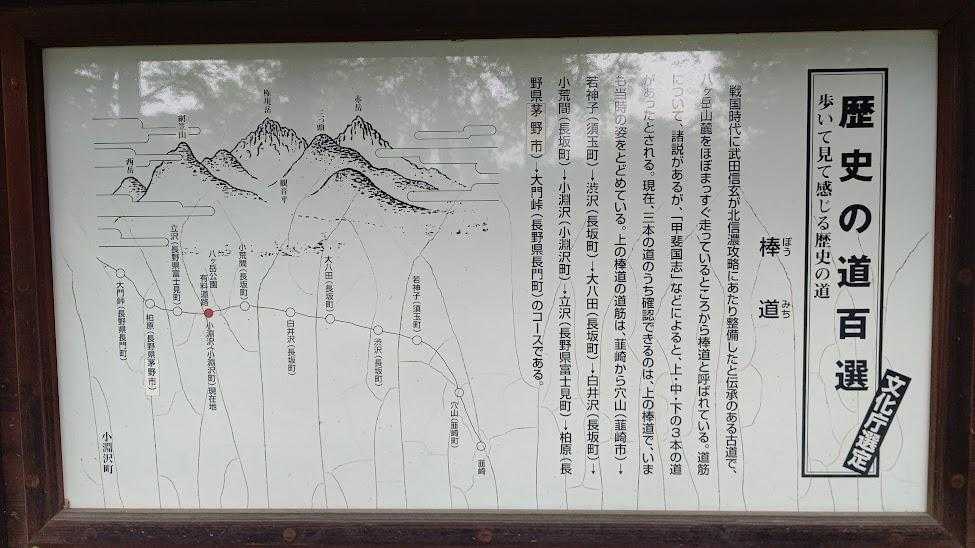 歴史の道百選
歩いて見て感じる歴史の道
文化庁選定
棒道
ぼうみち
戦国時代に武田信玄が北信濃攻略にあたり整備したと伝承のある古道で、
八ヶ岳山麓をほぼまっすぐ走っているところから棒道と呼ばれている。道筋
について、諸説があるが、「甲斐国志」などによると、上・中・下の3本の道
があったとされる。現在、三本の道のうち確認できるのは、上の棒道で、いま
も当時の姿をとどめている。上の棒道の道筋は、韮崎から穴山(韮崎市)→
若神子(須玉町)→渋沢(長坂町)→大八田(長坂町)→白井沢(長坂町)→
小荒間(長坂町)→小淵沢(小淵沢町)→立沢(長野県富士見町)→柏原(長
野県茅野市)→大門峠(長野県長門町)のコースである。
赤岳
三つ頭
権現岳
観音平
編笠山
西岳
若神子(須玉町)
大八田(長坂町)
小荒間(長坂町)
八ヶ岳公園
有料道路
立沢(長野県富士見町)
韮崎
穴山(韮崎町)
渋沢(長坂町)
白井沢(長坂町)
小淵沢(小淵沢町)現在地
柏原(長野県茅野市)
大門峠(長野県長門町)
小淵沢町